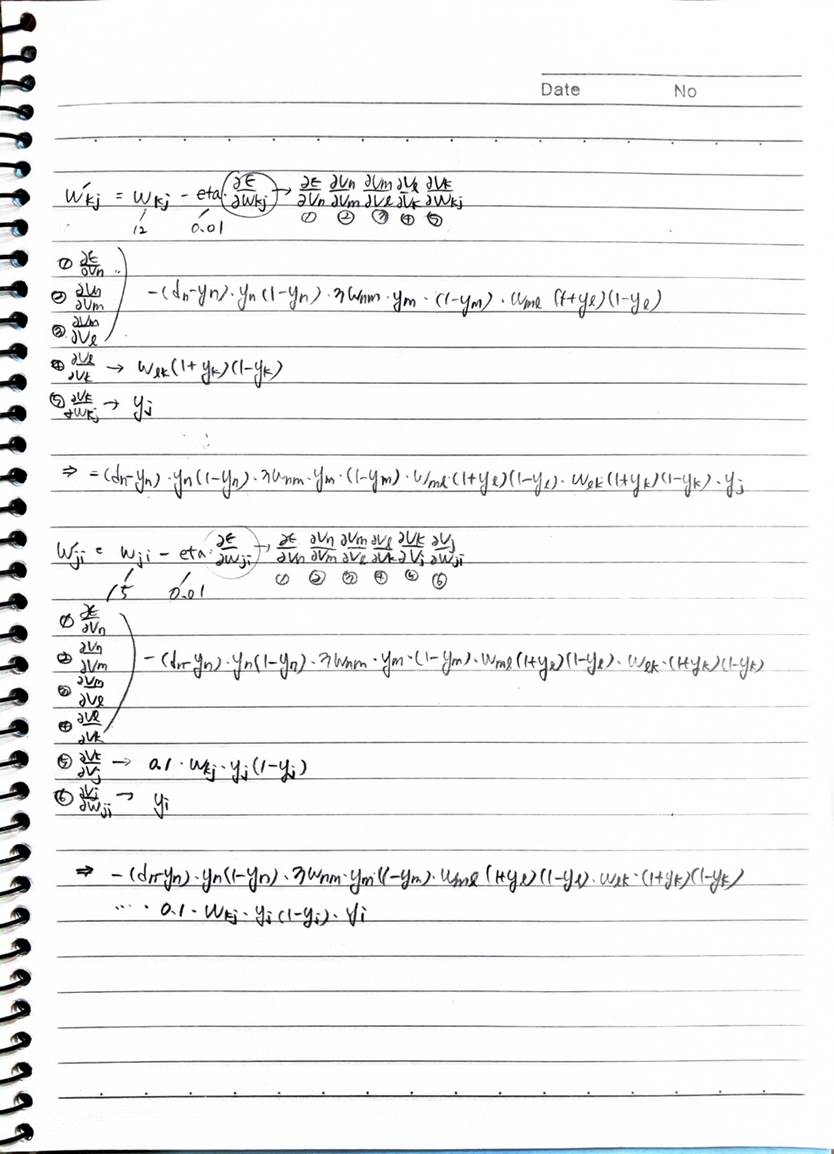 Date No
w'kj = wkj - eta · ∂ε/∂wkj → ∂ε/∂vn ∂vn/∂vm ∂vm/∂vl ∂vl/∂vk ∂vk/∂wkj
12 0.01 ① ② ③ ④ ⑤
① ∂ε/∂vn
② ∂vn/∂vm -(dn-yn)·yn(1-yn)·3wnm·ym·(1-ym)·wml(1+yl)(1-yl)
③ ∂vm/∂vl
④ ∂vl/∂vk → wlk(1+yk)(1-yk)
⑤ ∂vk/∂wkj → yj
⇒ =(dn-yn)·yn(1-yn)·3wnm·ym·(1-ym)·wml·(1+yl)(1-yl)·wlk(1+yk)(1-yk)·yj
w'ji = wji - eta · ∂ε/∂wji → ∂ε/∂vn ∂vn/∂vm ∂vm/∂vl ∂vl/∂vk ∂vk/∂vj ∂vj/∂wji
15 0.01 ① ② ③ ④ ⑤ ⑥
① ∂ε/∂vn
② ∂vn/∂vm -(dn-yn)·yn(1-yn)·3wnm·ym·(1-ym)·wml(1+yl)(1-yl)·wlk·(1+yk)(1-yk)
③ ∂vm/∂vl
④ ∂vl/∂vk
⑤ ∂vk/∂vj → 0.1·wkj·yj(1-yj)
⑥ ∂vj/∂wji → yi
⇒ -(dn-yn)·yn(1-yn)·3wnm·ym·(1-ym)·wml(1+yl)(1-yl)·wlk·(1+yk)(1-yk)
... · 0.1·wkj·yj(1-yj)·yi